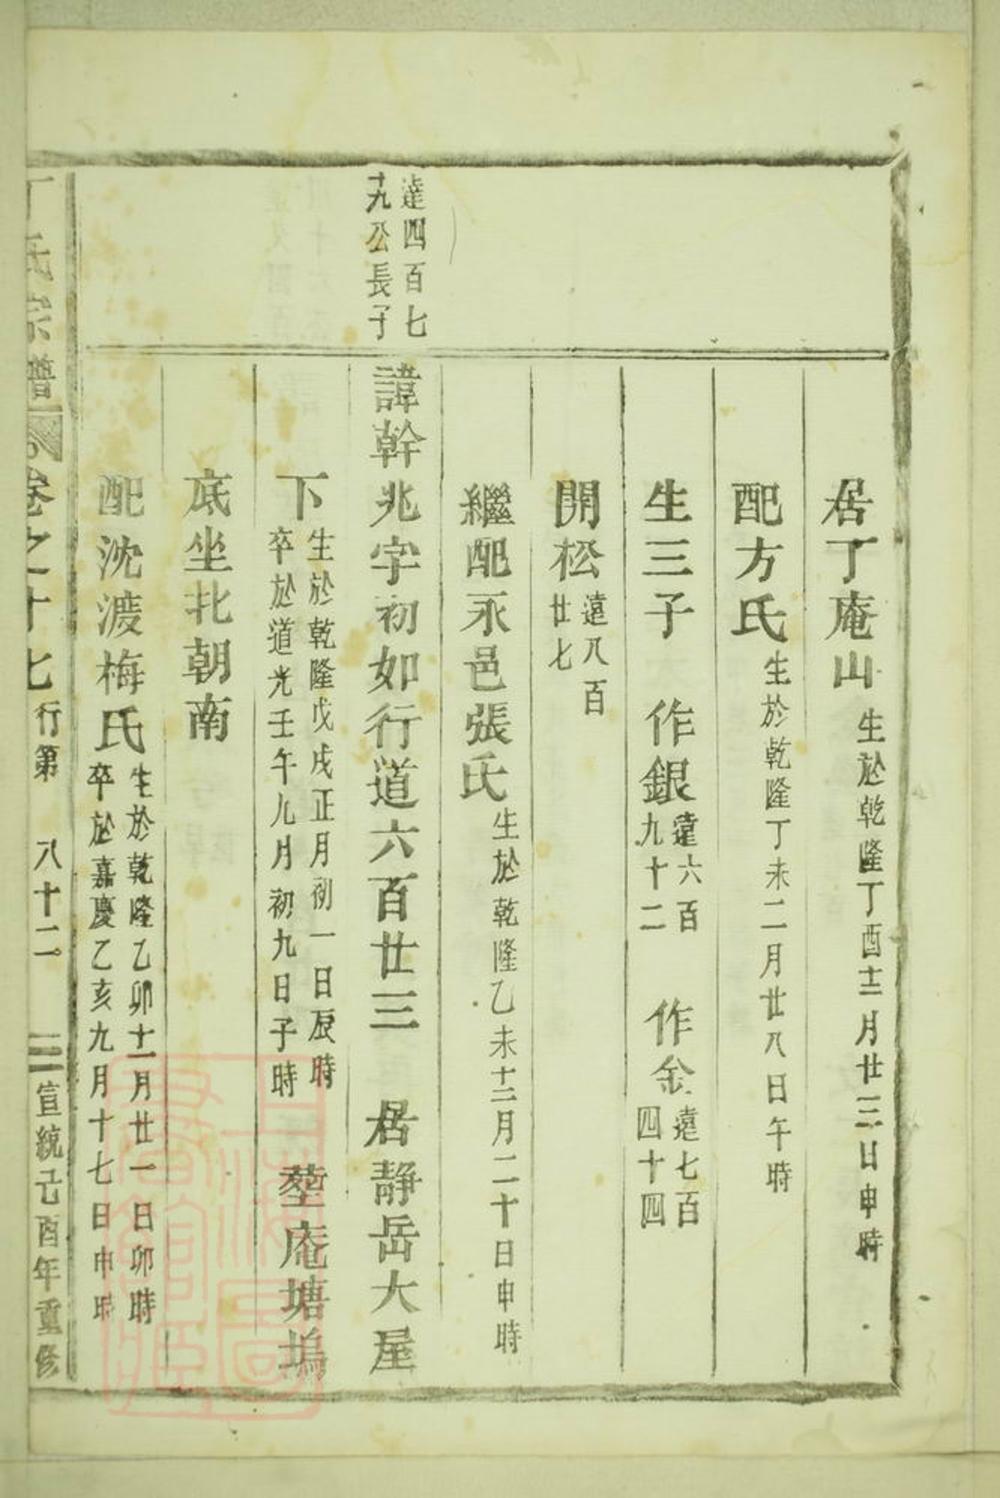 居丁庵山 生於乾隆丁酉十二月廿三日申時
配方氏 生於乾隆丁未二月廿八日午時
生三子 作銀 遠六百九十二 作金 遠七百四十四
開松 遠八百廿七
繼配永邑張氏 生於乾隆乙未十二月二十日申時
達四百七十九公長子
諱幹兆字初如行道六百廿三 居靜岳大屋
下 生於乾隆戊戌正月初一日辰時 卒於道光壬午九月初九日子時 塋庵塘塢
底坐北朝南
配沈渡梅氏 生於乾隆乙卯十一月廿一日卯時 卒於嘉慶乙亥九月十七日申時
丁氏宗譜 卷之十七 行第 八十二 宣統己酉年重修